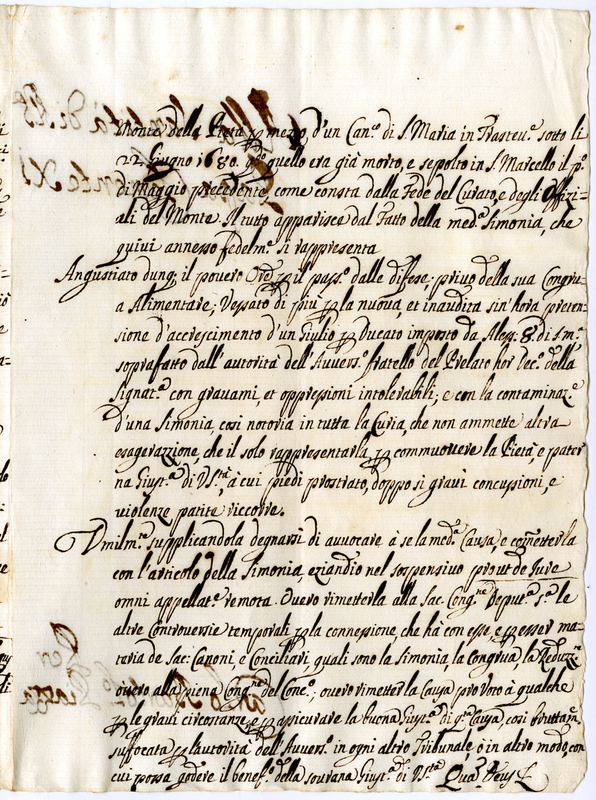 Monte della Pietà p mezzo d'un Can.co di S. Maria in Trasteu.e sotto li
22. Giugno 1680. qdo quello era già morto, e sepolto in S. Marcello il p.o
di Maggio precedente, come consta dalla Fede del Curato, e degli Offizi-
ali del Monte. Il tutto apparisce dal Fatto della med.a Simonia, che
quivi annesso fedelm.e si rappresenta
Angustiato dunq; il povero Ore p il pass.o dalle difese, privo della sua Congru-
a Alimentare, Vessato di più p la nuova, et inaudita sin'hora preten-
sione d'accrescimento d'un Giulio p Ducato imposto da Aless. 8. di s.m.
soprafatto dall'autorità dell'Avvers.o fratello del Prelato hor Dec.o della
Signat.a con gravami, et oppressioni intolerabili; e con la contaminaz.e
d'una Simonia, così notoria in tutta la Curia, che non ammette altra
esagerazione, che il solo rappresentarla, p commovere la Pietà, e pater
na Giust.a di V.S.tà, à cui piedi prostrato, doppo si gravi concussioni, e
violenze patite riccorre.
Vmilm.e supplicandola degnarsi di avvocare à se la med.a Causa, e cometterla
con l'articolo della Simonia, eziandio nel sospensivo prout de Jure
omni appellat.e remota. Overo rimetterla alla Sac. Cong.ne Deput.a s.a le
altre Controversie temporali p la connessione, che hà con esse, e p esser ma-
teria de Sac: Canoni, e Conciliari, quali sono la Simonia, la Congrua, la Reduz.ne
overo alla piena Cong.ne del Conc.o; overo rimetter la Causa pro voto à qualche
p le gravi circostanze, e p assicurare la buona Giust.a di q.a Causa, così bruttam.e
suffocata p l'autorità dell'Avvers.o in ogni altro Tribunale, ò in altro modo, con
cui possa godere il benef.o della sovrana Giust.a di V.S.tà Quam Deus &